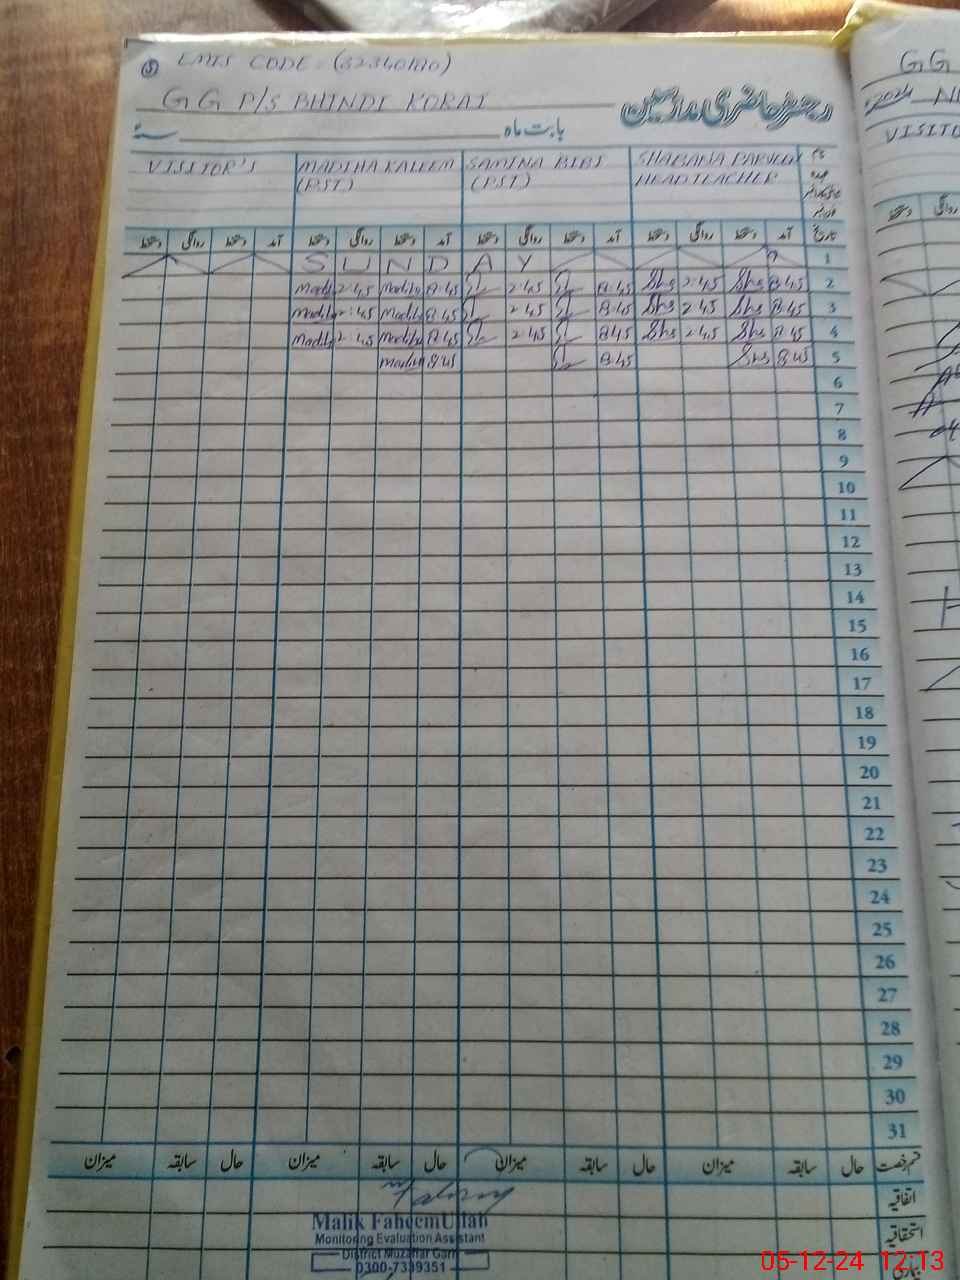 5 EMIS CODE = (32340110)
GG P/S BHINDI KORAI
رجسٹر حاضری مدرسین
بابت ماہ سنہ
VISITOR'S MADIHA KALEEM SAMINA BIBI SHABANA PARVEEN نام
(PST) (PST) HEADTEACHER عہدہ
تاریخ آمد دستخط روانگی دستخط آمد دستخط روانگی دستخط آمد دستخط روانگی دستخط آمد دستخط روانگی دستخط
SUNDAY 1
Madiha 2:45 Madiha 8:45 2:45 8:45 Shs 2:45 Shs 8:45 2
Madiha 2:45 Madiha 8:45 2:45 8:45 Shs 2:45 Shs 8:45 3
Madiha 2:45 Madiha 8:45 2:45 8:45 Shs 2:45 Shs 8:45 4
Madiha 8:45 8:45 Shs 8:45 5
6
7
8
9
10
11
12
13
14
15
16
17
18
19
20
21
22
23
24
25
26
27
28
29
30
31
قسم رخصت حال سابقہ میزان حال سابقہ میزان حال سابقہ میزان حال سابقہ میزان
اتفاقیہ
استحقاقیہ
Malik FaheemUllah
Monitoring Evaluation Assistant
District Muzaffar Garh
0300-7339351
GG
2024
VISITO
دستخط
05-12-24 12:13